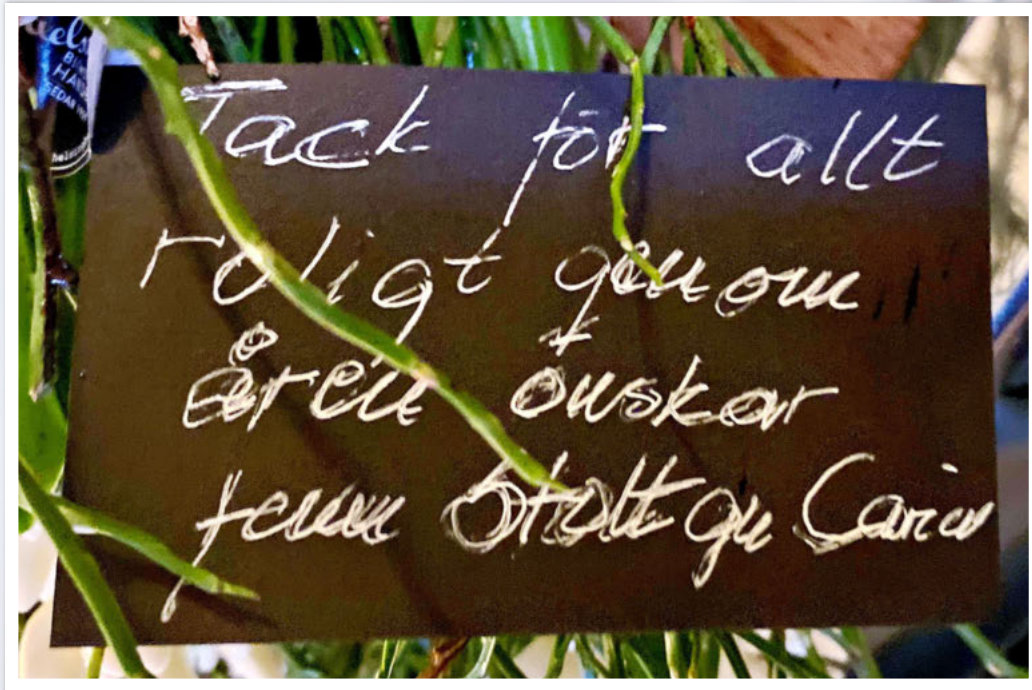 Tack för allt
roligt genom
åren önskar
fam Stoltz gm Carin